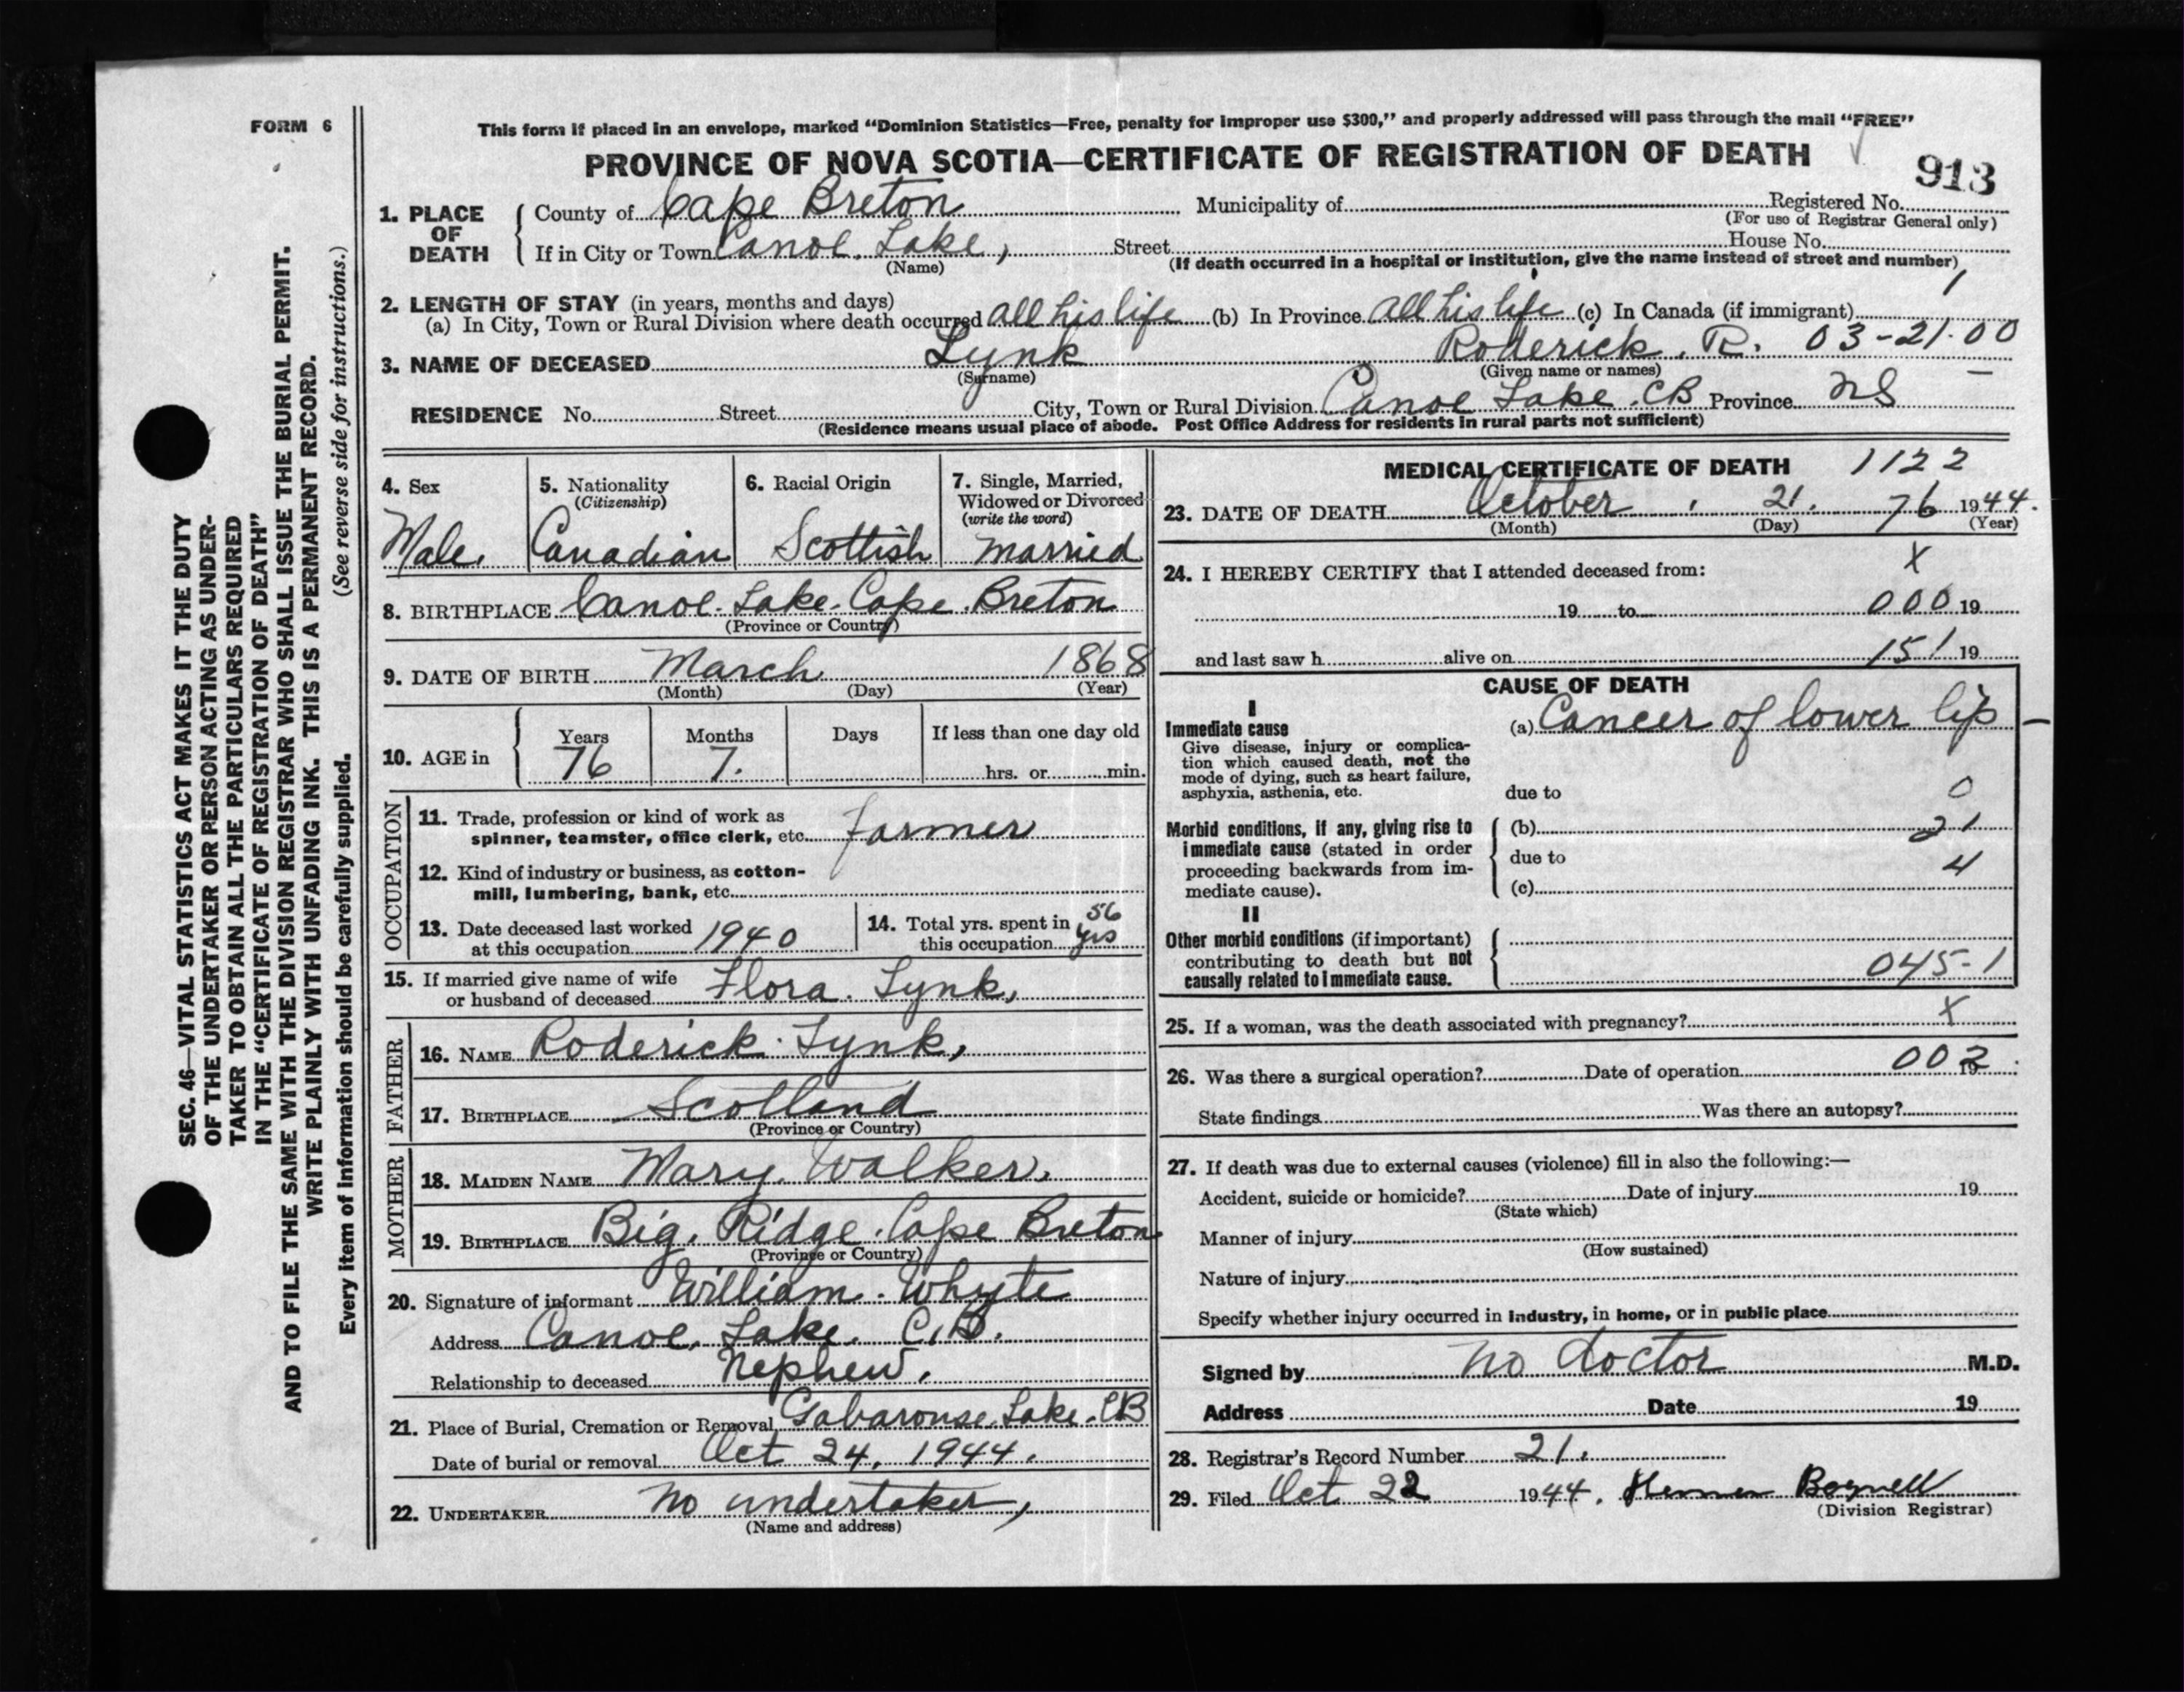 FORM 6
SEC. 46—VITAL STATISTICS ACT MAKES IT THE DUTY
OF THE UNDERTAKER OR PERSON ACTING AS UNDER-
TAKER TO OBTAIN ALL THE PARTICULARS REQUIRED
IN THE "CERTIFICATE OF REGISTRATION OF DEATH"
AND TO FILE THE SAME WITH THE DIVISION REGISTRAR WHO SHALL ISSUE THE BURIAL PERMIT.
WRITE PLAINLY WITH UNFADING INK. THIS IS A PERMANENT RECORD.
Every item of information should be carefully supplied. (See reverse side for instructions.)
This form if placed in an envelope, marked "Dominion Statistics—Free, penalty for improper use $300," and properly addressed will pass through the mail "FREE"
PROVINCE OF NOVA SCOTIA—CERTIFICATE OF REGISTRATION OF DEATH
913
1. PLACE OF DEATH
County of Cape Breton Municipality of Registered No.
(For use of Registrar General only)
If in City or Town Canoe Lake, Street House No.
(Name) (If death occurred in a hospital or institution, give the name instead of street and number)
2. LENGTH OF STAY (in years, months and days)
(a) In City, Town or Rural Division where death occurred all his life (b) In Province All his life (c) In Canada (if immigrant) 1
3. NAME OF DECEASED Lynk Roderick. R. 03-21-00
(Surname) (Given name or names)
RESIDENCE No. Street City, Town or Rural Division Canoe Lake. CB Province NS
(Residence means usual place of abode. Post Office Address for residents in rural parts not sufficient)
4. Sex
Male.
5. Nationality
(Citizenship)
Canadian
6. Racial Origin
Scottish
7. Single, Married,
Widowed or Divorced
(write the word)
married
8. BIRTHPLACE Canoe. Lake. Cape. Breton
(Province or Country)
9. DATE OF BIRTH March 1868
(Month) (Day) (Year)
10. AGE in
Years Months Days If less than one day old
76 7. hrs. or min.
OCCUPATION
11. Trade, profession or kind of work as
spinner, teamster, office clerk, etc. farmer
12. Kind of industry or business, as cotton-
mill, lumbering, bank, etc.
13. Date deceased last worked
at this occupation 1940
14. Total yrs. spent in
this occupation 56 yrs
15. If married give name of wife
or husband of deceased Flora. Lynk,
FATHER
16. NAME Roderick. Lynk,
17. BIRTHPLACE Scotland
(Province or Country)
MOTHER
18. MAIDEN NAME Mary. Walker.
19. BIRTHPLACE Big. Ridge. Cape Breton
(Province or Country)
20. Signature of informant William. Whyte
Address Canoe. Lake. C.B.
Relationship to deceased Nephew.
21. Place of Burial, Cremation or Removal Gabarouse Lake. CB
Date of burial or removal Oct 24, 1944.
22. UNDERTAKER No undertaker,
(Name and address)
MEDICAL CERTIFICATE OF DEATH 1122
23. DATE OF DEATH October 21. 76 1944.
(Month) (Day) (Year)
24. I HEREBY CERTIFY that I attended deceased from: X
19 to 000 19
and last saw h alive on 151 19
CAUSE OF DEATH
I
Immediate cause
Give disease, injury or complica-
tion which caused death, not the
mode of dying, such as heart failure,
asphyxia, asthenia, etc.
(a) Cancer of lower lip —
due to 0
Morbid conditions, if any, giving rise to
immediate cause (stated in order
proceeding backwards from im-
mediate cause).
(b) 21
due to 4
(c)
II
Other morbid conditions (if important)
contributing to death but not
causally related to immediate cause.
045-1
25. If a woman, was the death associated with pregnancy? X
26. Was there a surgical operation? Date of operation 002 19
State findings Was there an autopsy?
27. If death was due to external causes (violence) fill in also the following:—
Accident, suicide or homicide? Date of injury 19
(State which)
Manner of injury
(How sustained)
Nature of injury
Specify whether injury occurred in industry, in home, or in public place
Signed by no doctor M.D.
Address Date 19
28. Registrar's Record Number 21.
29. Filed Oct 22 1944.
(Division Registrar)